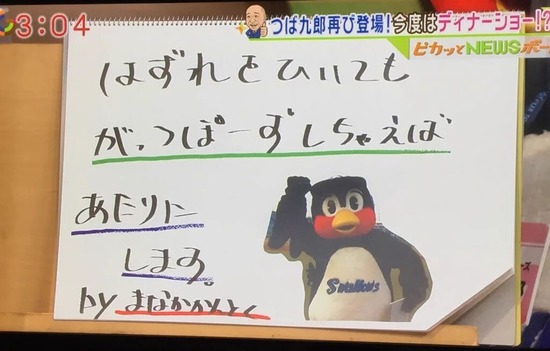 3:04
つば九郎再び登場!今度はディナーショー!?
ピカッとNEWSボー
はずれをひいても
がっつぽーずしちゃえば
あたりに
します。
by まなかかんとく
Swallows